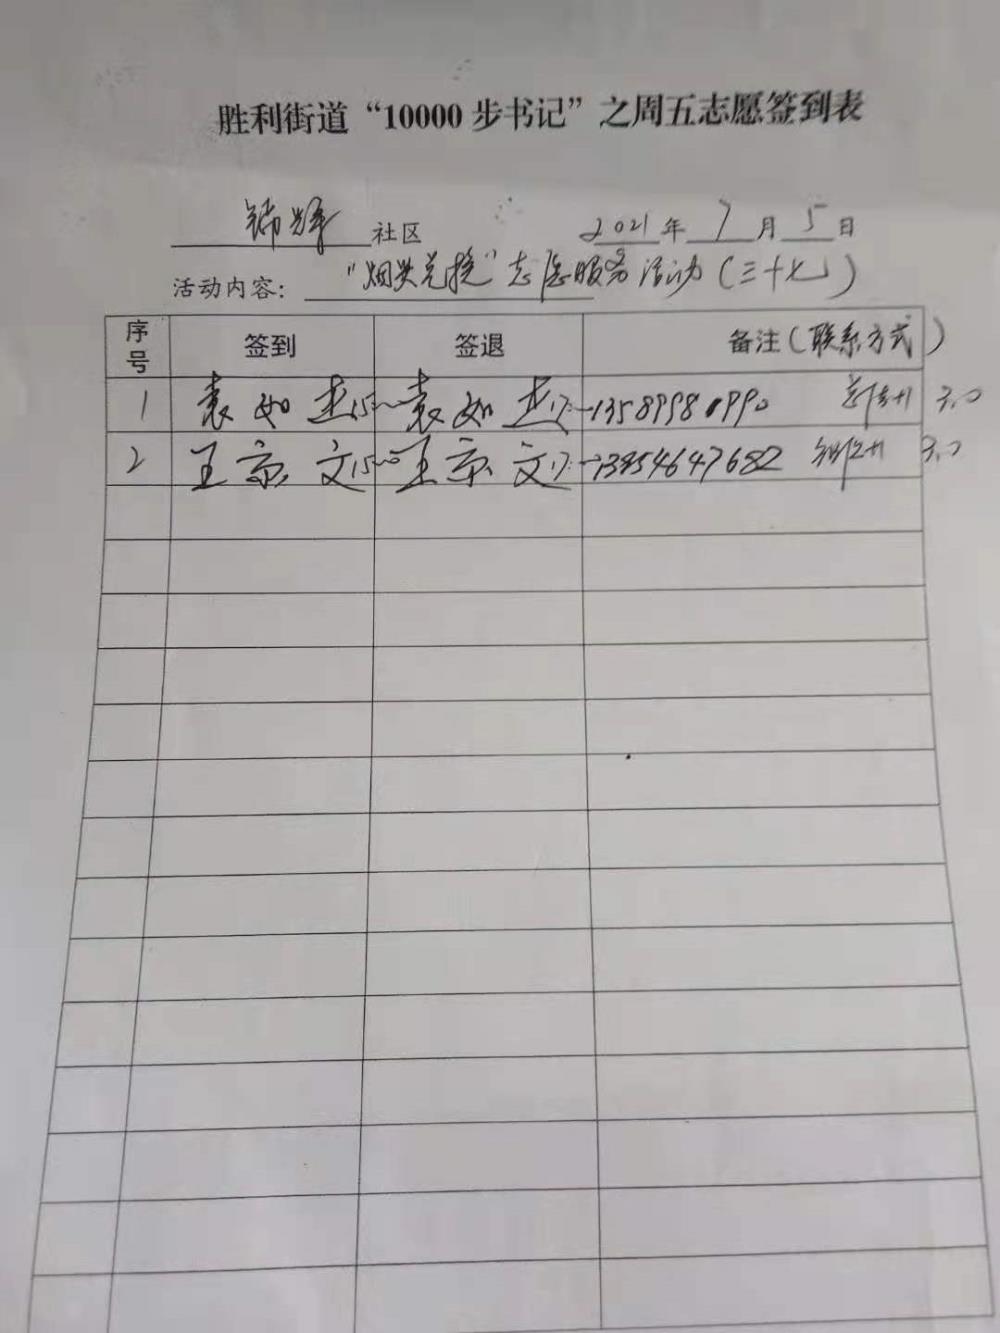 胜利街道“10000步书记”之周五志愿签到表
锦辉社区 2021年7月5日
活动内容：“烟头兑换”志愿服务活动（三十七）
序号 签到 签退 备注（联系方式）
1 袁如 15:00 袁如 17: 1358998 990 3.0
2 王京文 15:00 王京文 17: 13854647682 3.0